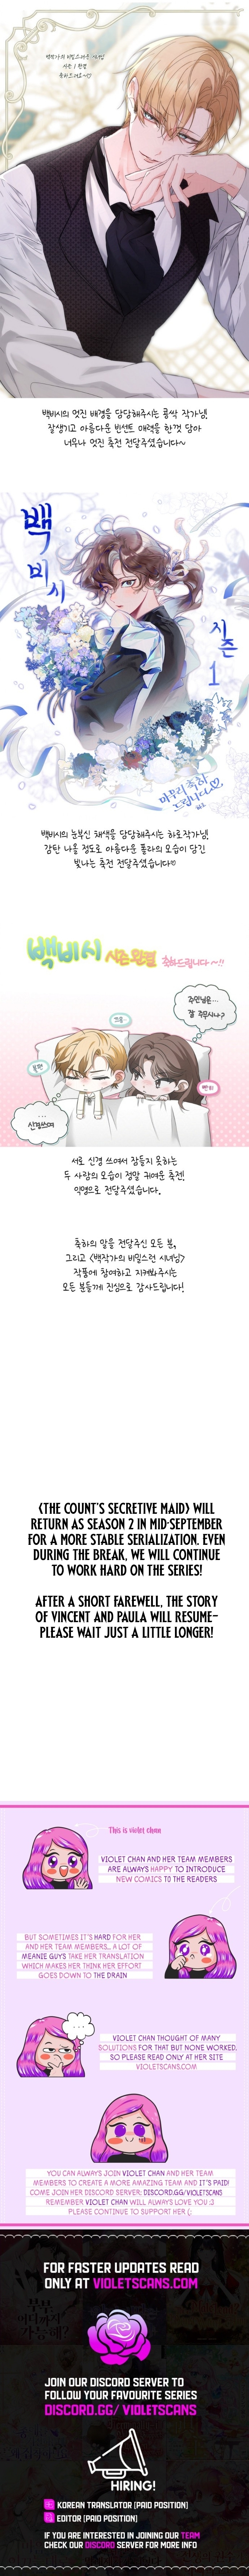 백작가의 비밀스러운 시녀님
시즌 1 완결
축하드려요~♡
백비시의 멋진 배경을 담당해주시는 콩싹 작가님!
잘생기고 아름다운 빈센트 매력을 한껏 담아
너무나 멋진 축전 전달주셨습니다~
백비시
시즌 1
마무리 축하
드립니다♡
백비시의 눈부신 채색을 담당해주시는 하로작가님!
감탄 나올 정도로 아름다운 폴라의 모습이 담긴
빛나는 축전 전달주셨습니다♡
백비시 시즌완결 축하드립니다~!!
주인님은...
잘 주무시나?
...
신경쓰여
서로 신경 쓰여서 잠들지 못하는
두 사람의 모습이 정말 귀여운 축전!
익명으로 전달주셨습니다.
축하의 말을 전달주신 모든 분,
그리고 <백작가의 비밀스런 시녀님>
작품에 참여하고 지켜봐주시는
모든 분들께 진심으로 감사드립니다!
<THE COUNT'S SECRETIVE MAID> WILL
RETURN AS SEASON 2 IN MID-SEPTEMBER
FOR A MORE STABLE SERIALIZATION. EVEN
DURING THE BREAK, WE WILL CONTINUE
TO WORK HARD ON THE SERIES!
AFTER A SHORT FAREWELL, THE STORY
OF VINCENT AND PAULA WILL RESUME-
PLEASE WAIT JUST A LITTLE LONGER!
This is violet chan
VIOLET CHAN AND HER TEAM MEMBERS
ARE ALWAYS HAPPY TO INTRODUCE
NEW COMICS TO THE READERS
BUT SOMETIMES IT'S HARD FOR HER
AND HER TEAM MEMBERS... A LOT OF
MEANIE GUYS TAKE HER TRANSLATION
WHICH MAKES HER THINK HER EFFORT
GOES DOWN TO THE DRAIN
...
VIOLET CHAN THOUGHT OF MANY
SOLUTIONS FOR THAT BUT NONE WORKED,
SO PLEASE READ ONLY AT HER SITE
VIOLETSCANS.COM
YOU CAN ALWAYS JOIN VIOLET CHAN AND HER TEAM
MEMBERS TO CREATE A MORE AMAZING TEAM AND IT'S PAID!
COME JOIN HER DISCORD SERVER: DISCORD.GG/VIOLETSCANS
REMEMBER VIOLET CHAN WILL ALWAYS LOVE YOU :3
PLEASE CONTINUE TO SUPPORT HER (;
FOR FASTER UPDATES READ
ONLY AT VIOLETSCANS.COM
JOIN OUR DISCORD SERVER TO
FOLLOW YOUR FAVOURITE SERIES
DISCORD.GG/ VIOLETSCANS
HIRING!
KOREAN TRANSLATOR [PAID POSITION]
EDITOR [PAID POSITION]
IF YOU ARE INTERESTED IN JOINING OUR TEAM
CHECK OUR DISCORD SERVER FOR MORE INFO